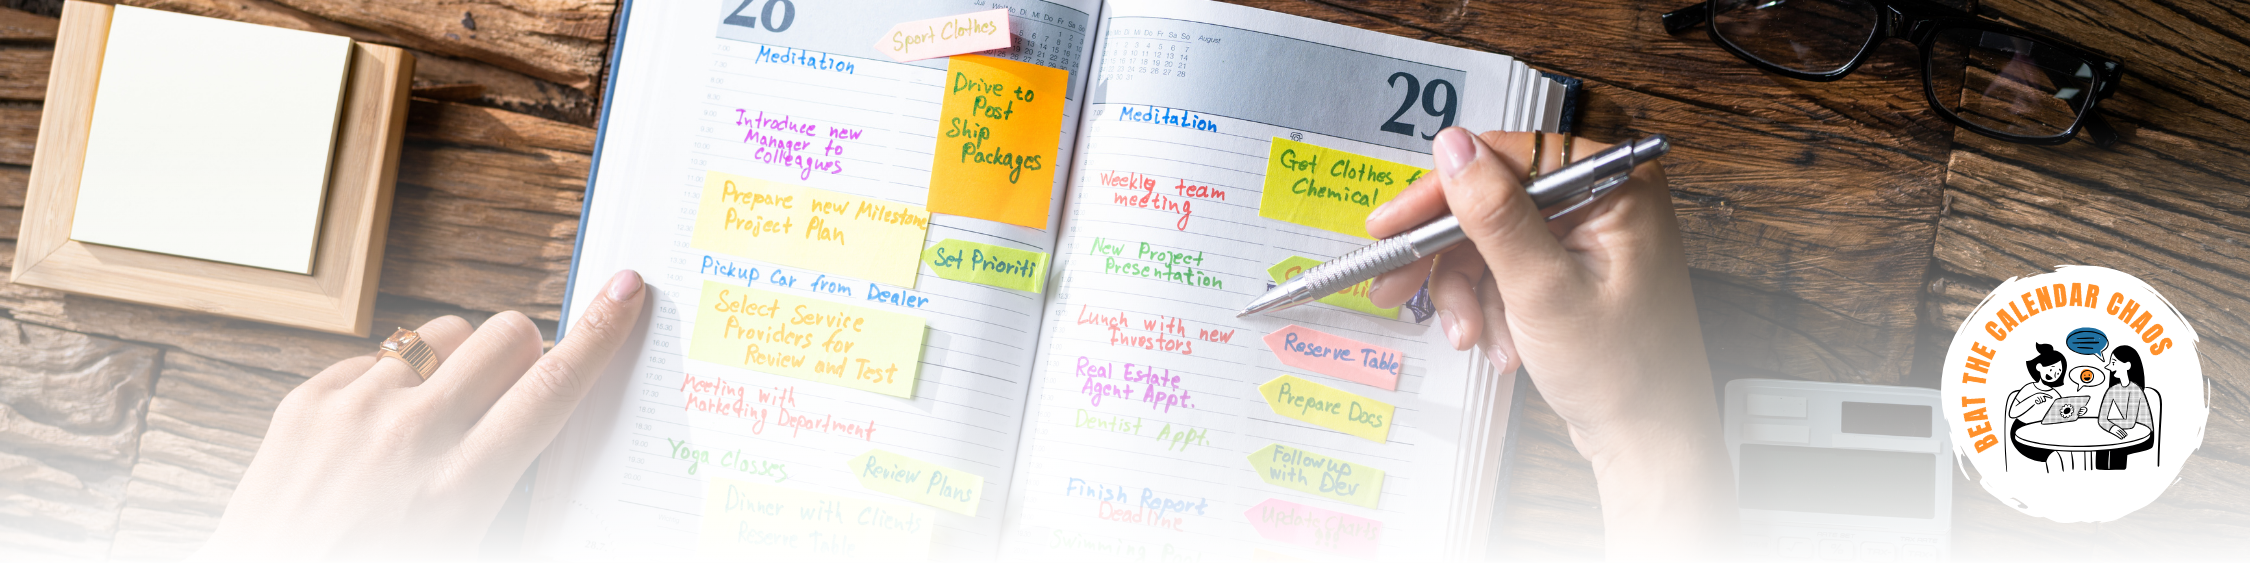 28
Sport Clothes
Meditation
Drive to
Post
Ship
Packages
Introduce new
Manager to
Colleagues
Prepare new Milestone
Project Plan
Set Prioriti
Pickup Car from Dealer
Select Service
Providers for
Review and Test
Meeting with
Marketing Department
Yoga Classes
Review Plans
Dinner with Clients
Reserve Table
August
29
Meditation
Get Clothes f
Chemical
Weekly team
meeting
New Project
Presentation
Lunch with new
Investors
Reserve Table
Real Estate
Agent Appt.
Prepare Docs
Dentist Appt.
Follow up
with Dev
Finish Report
Deadline
Swimming
BEAT THE CALENDAR CHAOS